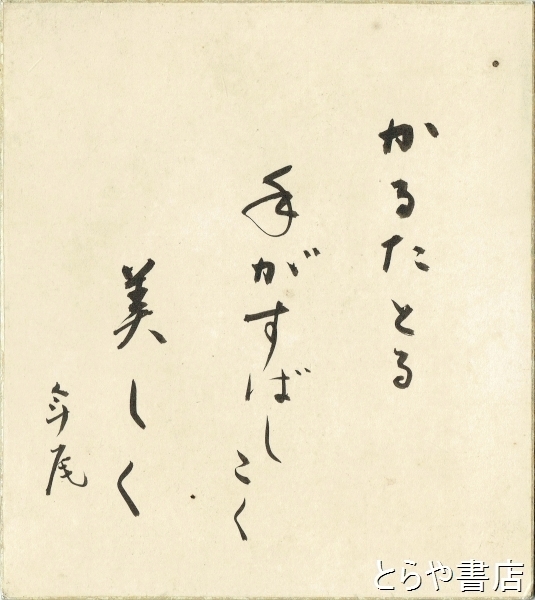 かるたとる
手がすばしこく
美しく
斉尾
とらや書店